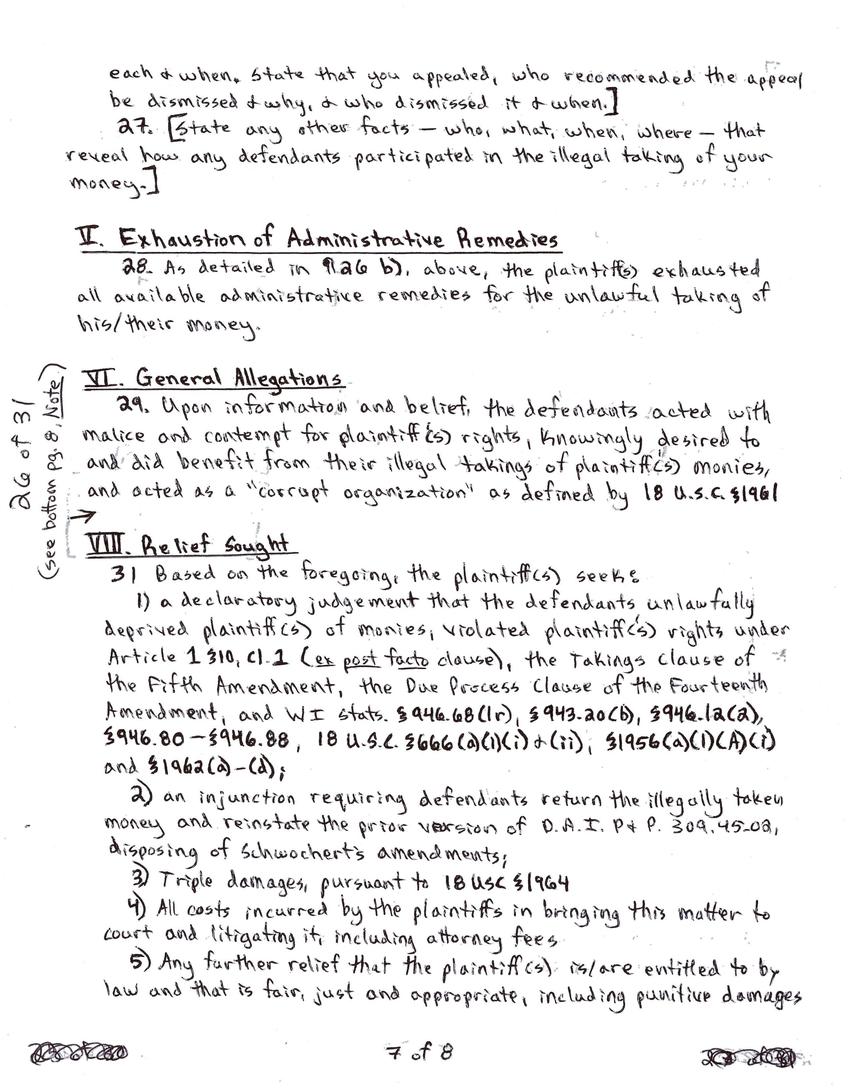 each & when. State that you appealed, who recommended the appeal
be dismissed & why, & who dismissed it & when.]
27. [State any other facts – who, what, when, where – that
reveal how any defendants participated in the illegal taking of your
money.]
V. Exhaustion of Administrative Remedies
28. As detailed in ¶26 b), above, the plaintiff(s) exhausted
all available administrative remedies for the unlawful taking of
his/their money.
VI. General Allegations
29. Upon information and belief, the defendants acted with
malice and contempt for plaintiff(s) rights, knowingly desired to
and did benefit from their illegal takings of plaintiff(s)' monies,
and acted as a "corrupt organization" as defined by 18 U.S.C. §1961
26 of 31
(see bottom pg. 8, Note)
VIII. Relief Sought
31 Based on the foregoing, the plaintiff(s) seek:
1) a declaratory judgement that the defendants unlawfully
deprived plaintiff(s) of monies, violated plaintiff(s)' rights under
Article 1 §10, Cl. 1 (ex post facto clause), the Takings Clause of
the Fifth Amendment, the Due Process Clause of the Fourteenth
Amendment, and WI stats. §946.68(1r), §943.20(b), §946.12(2),
§946.80–§946.88, 18 U.S.C. §666(a)(1)(i) & (ii), §1956(a)(1)(A)(i)
and §1962(a)-(d);
2) an injunction requiring defendants return the illegally taken
money and reinstate the prior version of D.A.I. P & P. 309.45.02,
disposing of Schwochert's amendments;
3) Triple damages, pursuant to 18 USC §1964
4) All costs incurred by the plaintiffs in bringing this matter to
court and litigating it, including attorney fees
5) Any further relief that the plaintiff(s) is/are entitled to by
law and that is fair, just and appropriate, including punitive damages
7 of 8